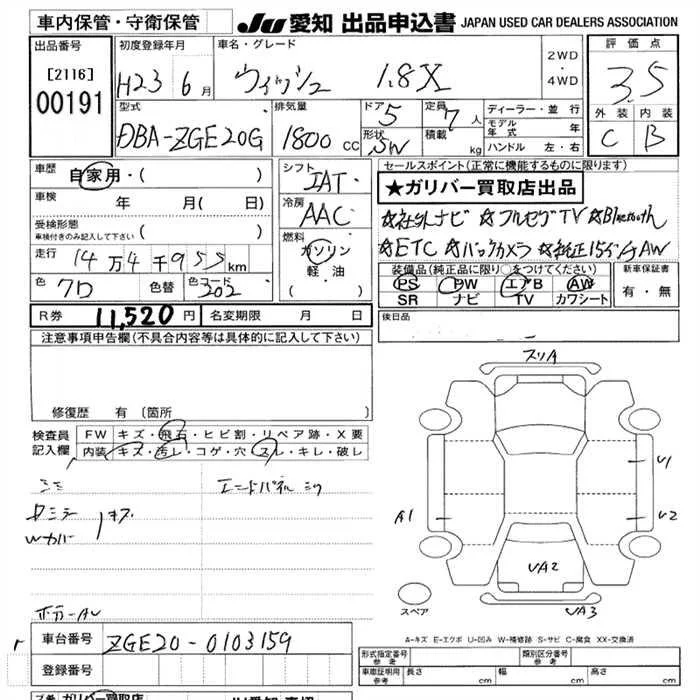 車内保管・守衛保管 JU 愛知 出品申込書 JAPAN USED CAR DEALERS ASSOCIATION
出品番号 初度登録年月 車名・グレード 評価点
[2116] H23年 6月 ウィッシュ 1.8X 2WD・4WD 3.5
00191
型式 排気量 ドア 5 定員 7人 ディーラー・並行 外装 内装
DBA-ZGE20G 1800cc 形状 SW 積載 kg モデル年式 年 C B
ハンドル 左・右
車歴 自家用・( ) シフト IAT セールスポイント(正常に機能するものに限ります)
★ガリバー買取店出品
車検 年 月( 日) 冷房 AAC
☆社外ナビ ☆フルセグTV ☆Bluetooth
受検形態 車検付きのみ記入して下さい ( ) 燃料 ガソリン・軽油 ( )
☆ETC ☆バックカメラ ☆純正15インチAW
走行 14万4千955km
装備品(純正品に限り○をつけてください) 新車保証書
色 クロ 色替 色コード 202
PS PW エアB AW 有・無
SR ナビ TV カワシート
R券 11,520円 名変期限 月 日 後日品
注意事項申告欄(不具合内容等は具体的に記入して下さい)
スリA
修復歴 有〔箇所 〕
検査員記入欄 FW キズ・飛石・ヒビ割・リペア跡・X要
内装 キズ・汚レ・コゲ・穴・スレ・キレ・破レ
U1
A1
U2
UA2
UA3
スペア
A-キズ E-エクボ U-凹み W-補修跡 S-サビ C-腐食 XX-交換済
車台番号 ZGE20-0103159
登録番号
形式指定番号 参考 類別区分番号 参考
車庫証明用 参考 長さ cm 幅 cm 高さ cm
ガリバー買取店 JU愛知